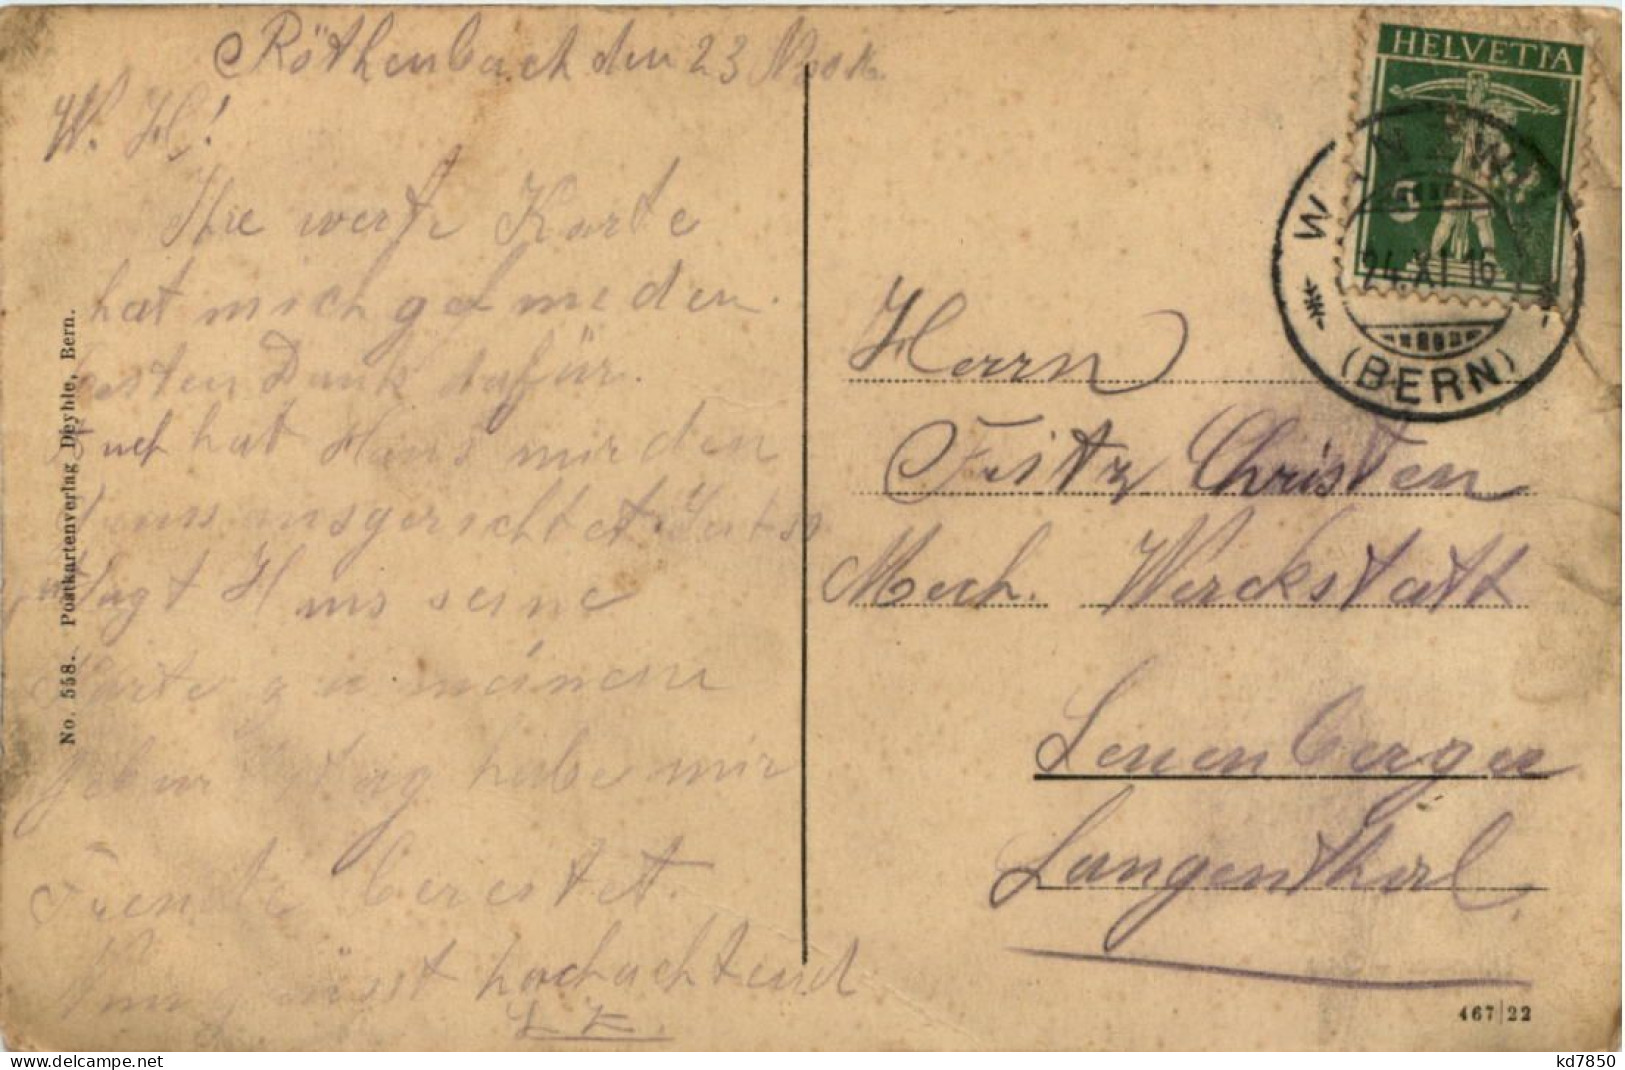 Röthenbach den 23 Nov.
W. H!
Ihre werte Karte
hat mich gefreut den
besten Dank dafür.
Auch hat Hans mir den
Gruss ausgerichtet.
sagt Hans seine
Karte zu meinem
Geburtstag habe mir
Freude bereitet.
grüsst hochachtend
L. K.
No. 558. Postkartenverlag Deyhle, Bern.
HELVETIA
5
WYNIGEN
24.XI.16
(BERN)
Herrn
Fritz Christen
Mech. Werckstatt
Leuenberger
Langenthal.
467|22
delcampe.net
kd7850